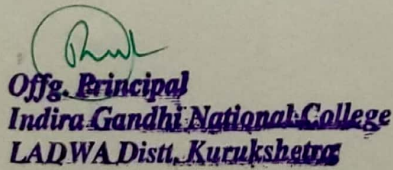 Offg. Principal
Indira Gandhi National College
LADWA Distt. Kurukshetra